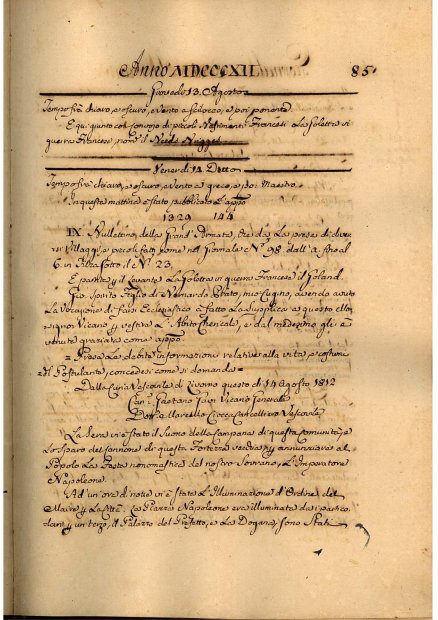 Anno MDCCCXII 85
Giovedo 13. Agosto
Tempo frà chiaro, e oscuro, e vento a scilocco, e poi ponente
E qui giunto con convojo di piccoli Bastimenti Francesi La Goletta di
guerra Francese, nom.
Venerdì 14 Detto
Tempo frà chiaro, e oscuro, e vento a greco, e poi Maestro
In questa mattina è stato pubblicato L'appo
1329 144
IX. Bullettino della Grand'Armata, che dà La presa di diver
si Villaggi, e piccoli fatti come nel Giornale N.° 98 dall'
6 in Filza sotto il N.° 23
E partita p il Levante La Goletta in guerra Francese il Goland
Gio: figlio di Bernardo Prato, mio Cugino, avendo avuto
La Vocazione di farsi Ecclesiastico à fatto La Supplica a questo Ill.mo
Signor Vicario p vestire L'Abito Chericale, e dal medesimo gli è
venuta graziata come appo
= Presa La debita informazione relativa alla vita, e costumi
del Postulante, concedesi come si domanda =
Dalla Curia Vescovile di Livorno questo dì 14 Agosto 1812
Can.co Gaetano Vicario Generale
Dott.e Marcello Ciocca Cancelliere Vescovile
La Sera vi è stato il Suono della Campana di questa Comunità, e
Lo Sparo del Cannone di questa Fortezza vecchia p annunziare al
Popolo La Festa nonomastica del nostro Sovrano, L'Imperatore
Napoleone.
Ad un'ora di notte vi è stata L'Illuminazione d'Ordine del
Maire p La Città: La Piazza Napoleone era illuminata da i partico
lari p un terzo, il Palazzo del Prefetto, e La Dogana, sono Stati